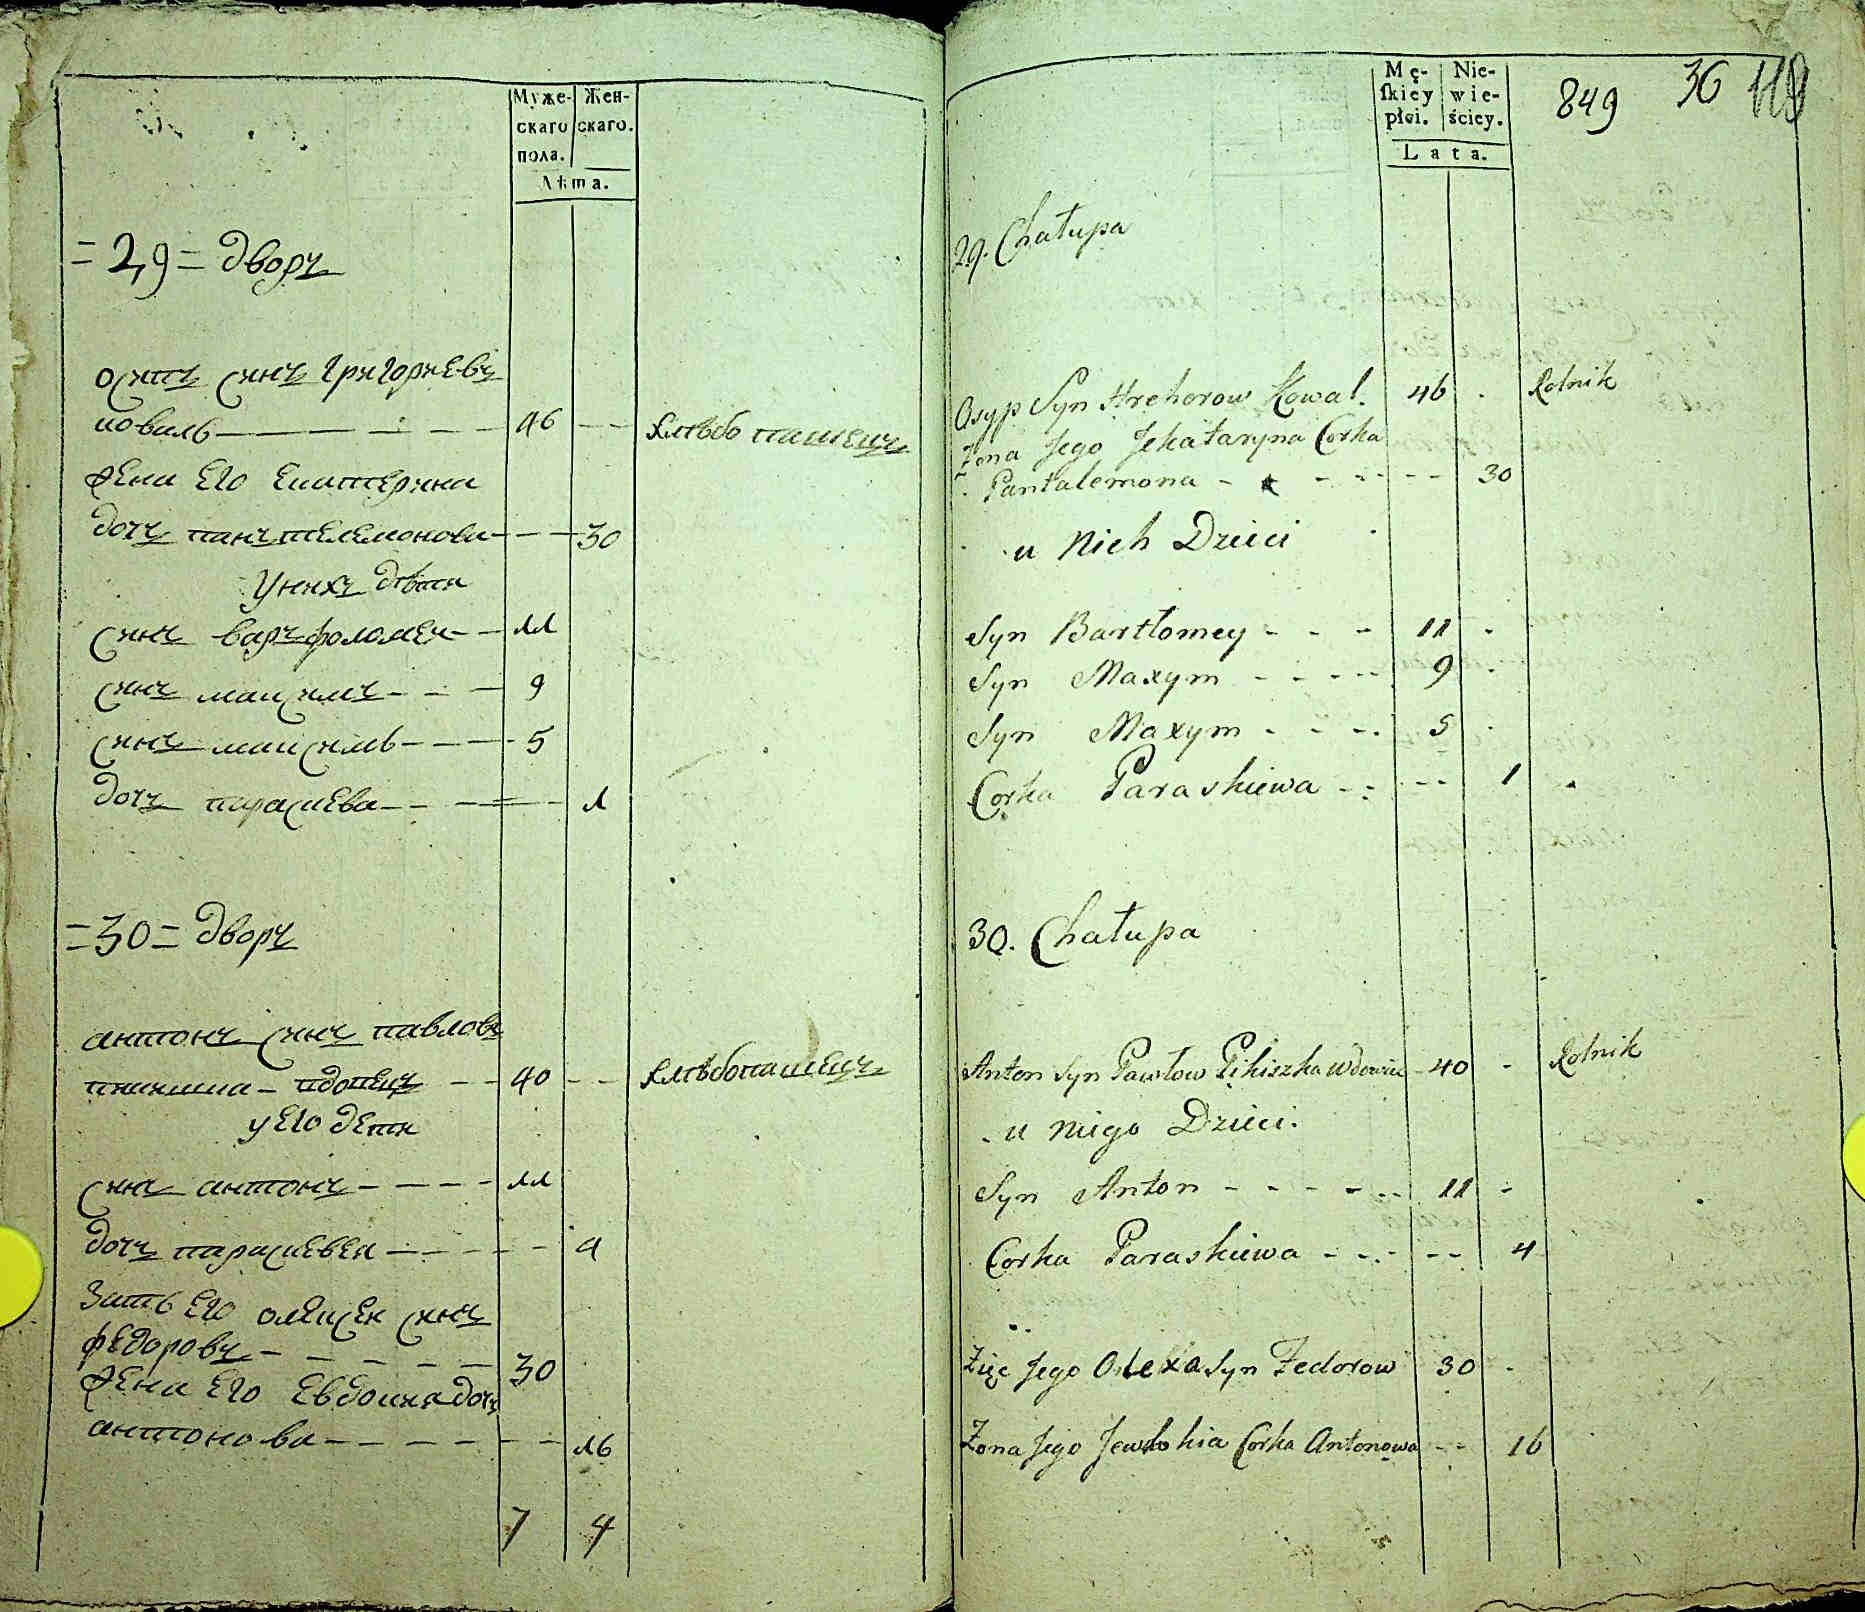 Муже- Жен-
скаго скаго.
пола.
Лѣта.
=29= дворъ
осипъ синъ григориевъ
коваль 46 хлѣбопашецъ
жена его екатерина
дочъ панътелемонова 30
у нихъ дѣти
синъ варъфоломеи 11
синъ максимъ 9
синъ максимъ 5
дочъ параскева 1
=30= дворъ
антонъ синъ павловъ
пикишка - вдовецъ 40 хлѣбопашецъ
у его дети
синъ антонъ 11
дочъ параскевея 4
зать его олексеи синъ
федоровъ 30
жена его евдокия дочъ
антонова 16
7 4
Mę- Nie-
ſkiey wie-
płci. ściey.
Lata.
849 36 119
29. Chałupa
Osyp Syn Hrehorow Kowal. 46 Rolnik
Zona Jego Jekataryna Corka
Pantalemona 30
u Nich Dzieci
Syn Bartłomey 11
Syn Maxym 9
Syn Maxym 5
Corka Paraskiewa 1
30. Chałupa
Anton Syn Pawłow Pikiszka Wdowiec 40 Rolnik
u niego Dzieci.
Syn Anton 11
Corka Paraskiewa 4
Zięc Jego Olexa Syn Fedorow 30
Zona Jego Jewdokia Corka Antonowa 16